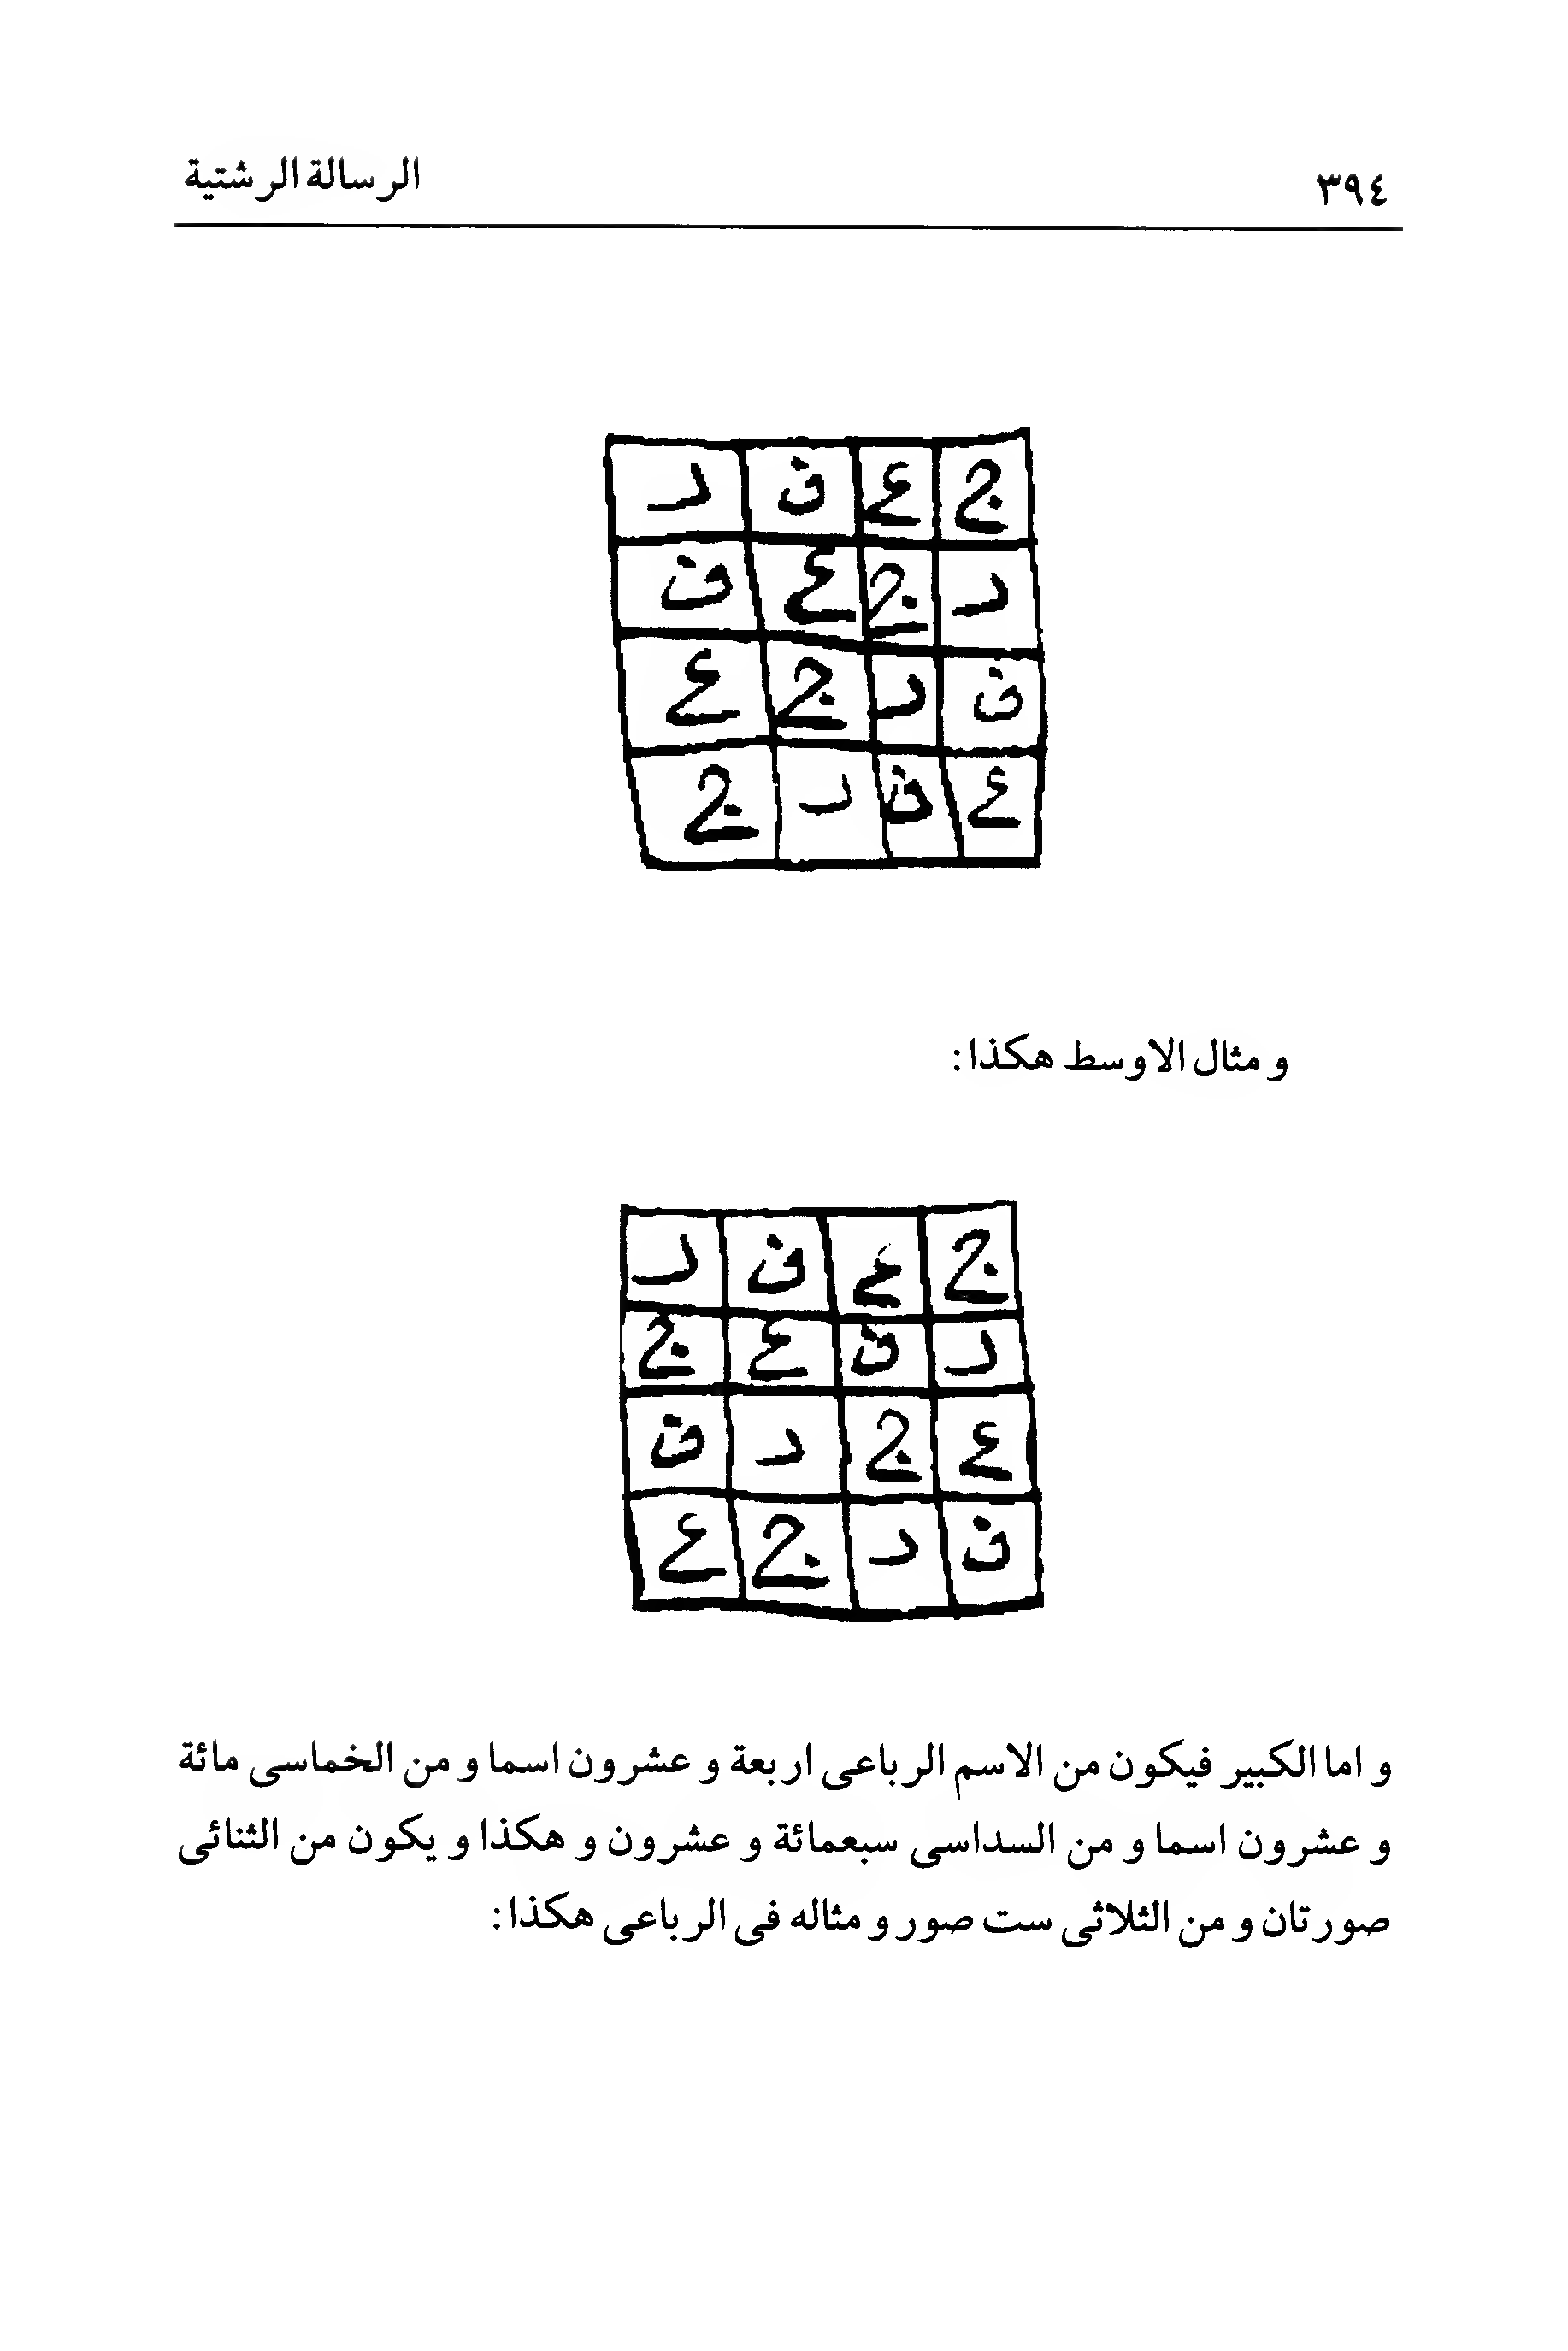 ٣٩٤ الرسالة الرشتية
ج ع ف ر
ر ج ع ف
ف ر ج ع
ع ف ر ج
و مثال الاوسط هكذا :
ج ع ف ر
ر ف ع ج
ع ج ر ف
ف ر ج ع
و اما الكبير فيكون من الاسم الرباعى اربعة و عشرون اسما و من الخماسى مائة
و عشرون اسما و من السداسى سبعمائة و عشرون و هكذا و يكون من الثنائى
صورتان و من الثلاثى ست صور و مثاله فى الرباعى هكذا :